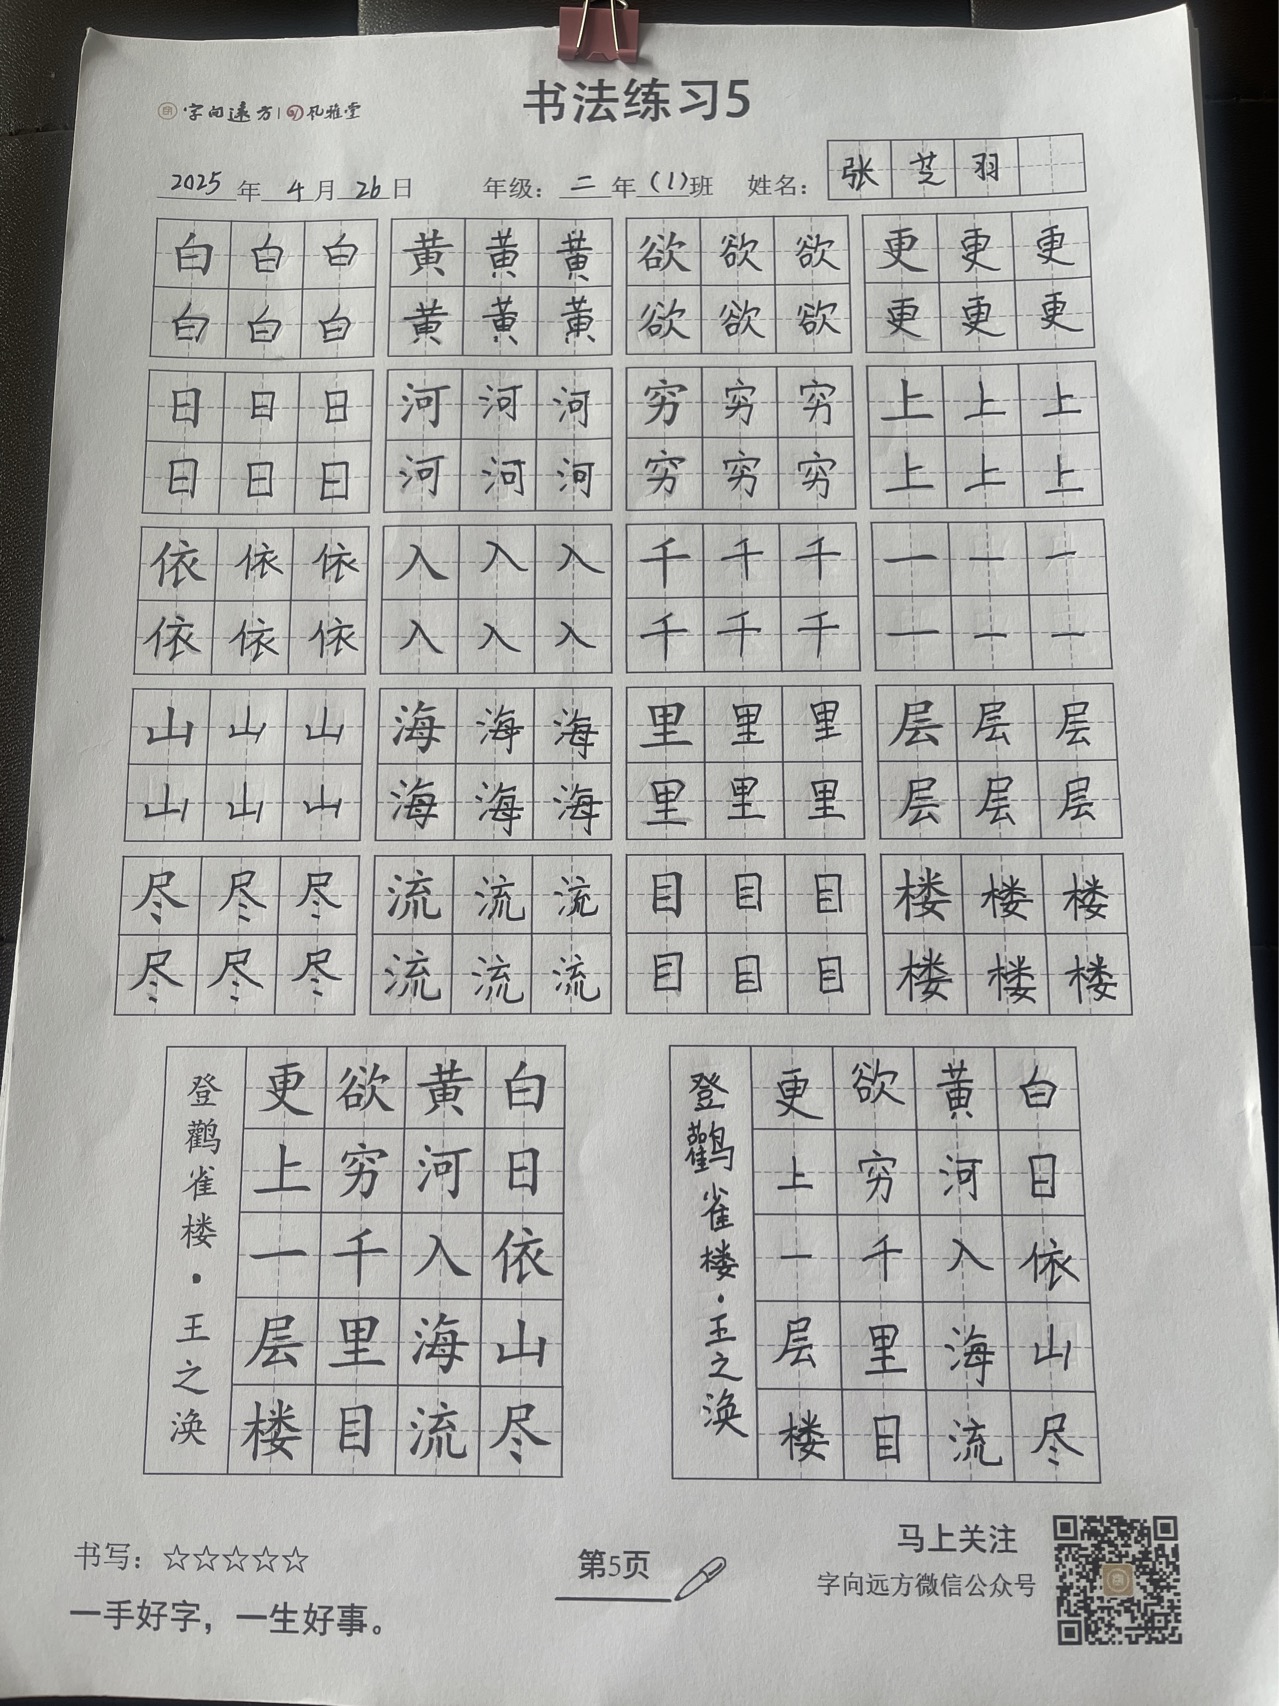 字向远方 孔雅堂
书法练习5
2025年4月26日 年级：二年(1)班 姓名：张芝羽
白白白 黄黄黄 欲欲欲 更更更
白白白 黄黄黄 欲欲欲 更更更
日日日 河河河 穷穷穷 上上上
日日日 河河河 穷穷穷 上上上
依依依 入入入 千千千 一一一
依依依 入入入 千千千 一一一
山山山 海海海 里里里 层层层
山山山 海海海 里里里 层层层
尽尽尽 流流流 目目目 楼楼楼
尽尽尽 流流流 目目目 楼楼楼
白日依山尽
黄河入海流
欲穷千里目
更上一层楼
登鹳雀楼·王之涣
白日依山尽
黄河入海流
欲穷千里目
更上一层楼
登鹳雀楼·王之涣
书写：☆☆☆☆☆
一手好字，一生好事。
第5页
马上关注
字向远方微信公众号